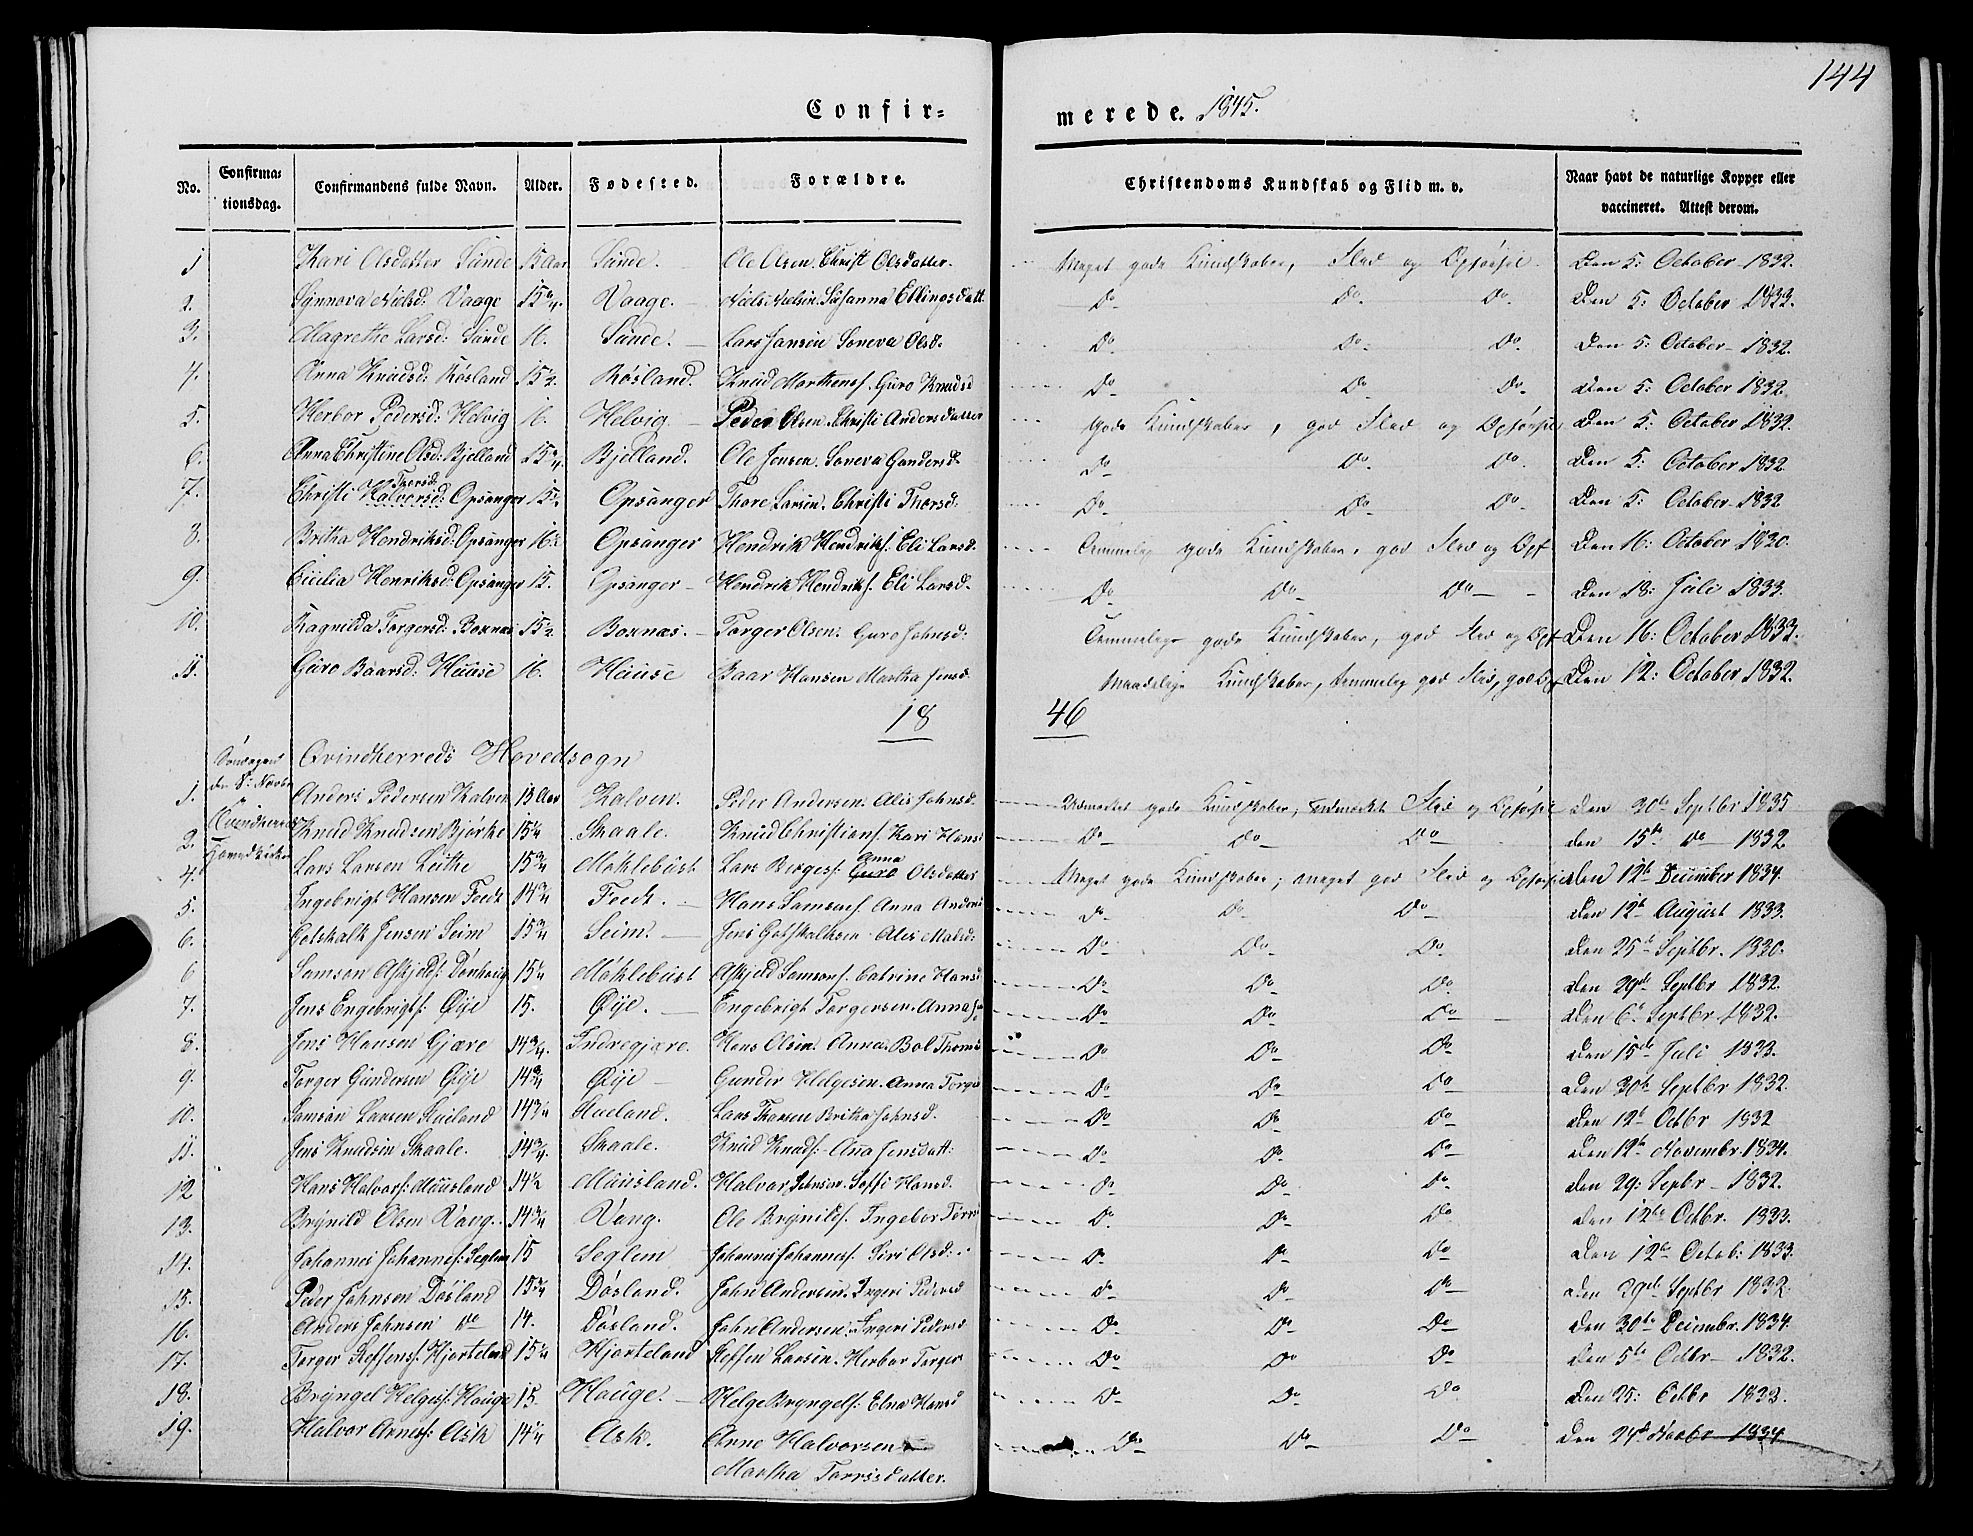 144
Confirmerede. 1845.
No. Confirmationsdag. Confirmandens fulde Navn. Alder. Fødested. Forældre. Christendoms Kundskab og Flid m. v. Naar havt de naturlige Kopper eller vaccineret. Attest derom.
1 Kari Olsdatter Sunde 15 Aar Sunde. Ole Olsen. Christi Olsdatter. Meget gode Kundskaber, Flid og Opførsel. Den 5: October 1832.
2. Synneva Nielsd: Vaage 15 3/4. Vaage. Niels Nielsen. Susanna Ellingsdatt Do Do Do Den 5: October 1832.
3. Magrethe Larsd: Sunde 16. Sunde. Lars Jansen Soneva Olsd. Do Do Do Den 5: October 1832.
4. Anna Knudsd: Røsland 15 1/2. Røsland. Knud Marthens. Guro Knudsd Do Do Do Den 5: October 1832
5. Herbor Pedersd: Helvig 16. Helvig. Peder Olsen. Christi Andersdatter Gode Kundskaber, god Flid og Opførsel Den 5: October 1832.
6. Anna Christine Olsd: Bjelland 15 3/4. Bjelland. Ole Jensen. Soneva Gundersd. Do Do Do Den 5: October 1832
7. Christi Halvorsd: Thorsd: Opsanger 15 1/2. Opsanger Thore Larsen. Christi Thorsd: Do Do Do Den 5: October 1832
8. Britha Hendriksd: Opsanger 16 Opsanger Hendrik Hendriks. Eli Larsd. Temmelig gode Kundskaber, god Flid og Opf. Den 16: October 1830.
9. Cicilia Henriksd: Opsanger 15. Opsanger Hendrik Hendriks. Eli Larsd. Do Do Do Den 18: Juli 1833.
10. Ragnilda Torgersd: Boxnæs 15 1/2. Boxnæs. Torger Olsen. Guro Johnsd: Temmelig gode Kundskaber, god Flid og Opf. Den 16: October 1833.
11. Guro Baarsd: Huuse 16. Huuse Baar Hansen Martha Jensd. Maadelige Kundskaber, temmelig god Flid, god Opf Den 12: October 1832.
18 46
Søndagen den 8: Novbr Qvindherreds Hovedsogn
1. Anders Pedersen Kalven 15 Aar Kalven. Peder Andersen. Alis Johnsd. Udmærket gode Kundskaber, udmærket Flid og Opførsel Den 30te Septbr 1835
2. Knud Knudsen Bjørke 15 1/4 Skaale. Knud Christians. Kari Hansd Do Do Do den 15de Do 1832
4. Lars Larsen Leithe 15 3/4 Møklebust Lars Berges. Guro Anna Olsdatter Meget gode Kundskaber, meget god Flid og Opførsel den 12te December 1834.
5. Ingebrigt Hansen Foedt 14 3/4 Foedt. Hans Samsons. Anna Anders Do Do Do den 12te August 1833.
6. Gotskalk Jensen Seim 15 3/4 Seim. Jens Gotskalksen Alis Madsd: Do Do Do den 25de Septbr. 1830.
6 Samson Askjelds: 15 1/4 Møklebust Askjeld Samsons. Catrine Hansd Do Do Do den 29de Septbr 1832.
7. Jens Engebrigts: Øije 15. Øije. Engebrigt Torgersen. Anna Do Do Do den 6te Septbr. 1832.
8. Jens Hansen Gjære 14 3/4. Indregjære. Hans Olsen. Anna Bol Thoms Do Do Do den 15de Juli 1833.
9. Torger Gundersen Øije 14 3/4 Øije Gunder Helgesen. Anna Torge Do Do Do den 30te Septbr 1832.
10. Samson Larsen Hueland 14 3/4 Hueland. Lars Thoresen Britha Johnsd. Do Do Do den 12te Octbr 1832
11. Jens Knudsen Skaale. 14 3/4. Skaale. Knud Knuds: Anna Jensdatt: Do Do Do den 12te Novembr. 1834.
12 Hans Halvors: Muusland 14 1/2 Muusland. Halvor Johnsen. Soffi Hansd. Do Do Do den 29: Septbr 1832.
13. Brynild Olsen Vang. 14 3/4 Vang. Ole Brynilds. Ingebor Torris Do Do Do den 12te Octbr. 1833.
14. Johannes Johannes: Seglem 15 Seglem Johannes Johannes. Siri Olsd: Do Do Do den 12te Octob: 1833.
15. Peder Johnsen Døsland 15 3/4 Døsland. John Andersen. Ingeri Pedersd Do Do Do den 29de Septbr 1832.
16. Anders Johnsen Do 14. Døsland. John Andersen. Ingeri Pedersd Do Do Do den 30te Decembr. 1834.
17. Torger Steffens: Hjorteland 15 1/4 Hjorteland Steffen Larsen. Herbor Torger Do Do Do den 5te Octbr 1832.
18. Bryngel Helges: Hauge 15. Hauge. Helge Bryngels: Elna Hansd Do Do Do den 25: Octbr 1832.
19. Halvor Arnes: Ask 14 1/4 Ask. Arne Halvorsen Do Do Do den 24de Novbr 1834
Martha Torrisdatter.